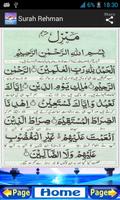 18:30
Surah Rehman
منزل
بِسْمِ اللهِ الرَّحْمٰنِ الرَّحِيْمِ
اَلْحَمْدُ لِلّٰهِ رَبِّ الْعٰلَمِيْنَ الرَّحْمٰنِ الرَّحِيْمِ
مٰلِكِ يَوْمِ الدِّيْنِ اِيَّاكَ نَعْبُدُ وَاِيَّاكَ
نَسْتَعِيْنُ اِهْدِنَا الصِّرَاطَ الْمُسْتَقِيْمَ
صِرَاطَ الَّذِيْنَ اَنْعَمْتَ عَلَيْهِمْ غَيْرِ الْمَغْضُوْبِ
عَلَيْهِمْ وَلَا الضَّآلِّيْنَ
Page Home Page